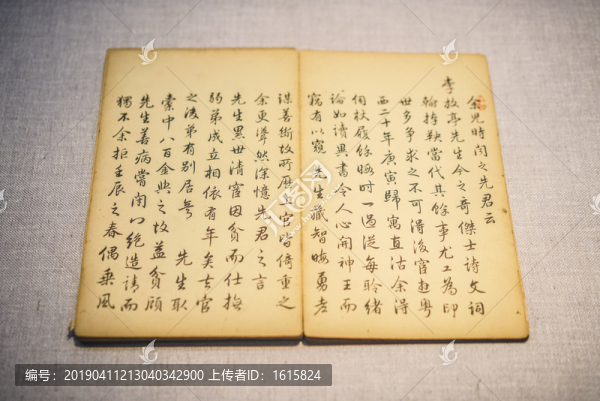 余兒時聞之先君云
李亭先生今之奇傑士詩文詞
翰掉鞅當代其餘事尤工為印
世多爭求之不可得後宦遊粵
西二十年庚寅歸寓直沽余得
杖履餘暇時一過從每聆緒
論如讀異書令人心開神王而
竊有以窺先生藏智晦勇者
謀善斷故所歷之官皆倚重之
余更然深憶先君之言
先生累世清宦因貧而仕撫
弱弟成立相依有年矣在官
之後弟有別居焉 先生取
橐中八百金與之故益貧顧
先生善病嘗閉门絕造請而
獨不余拒壬辰之春偶乘風
编号：20190411213040342900 上传者ID：1615824